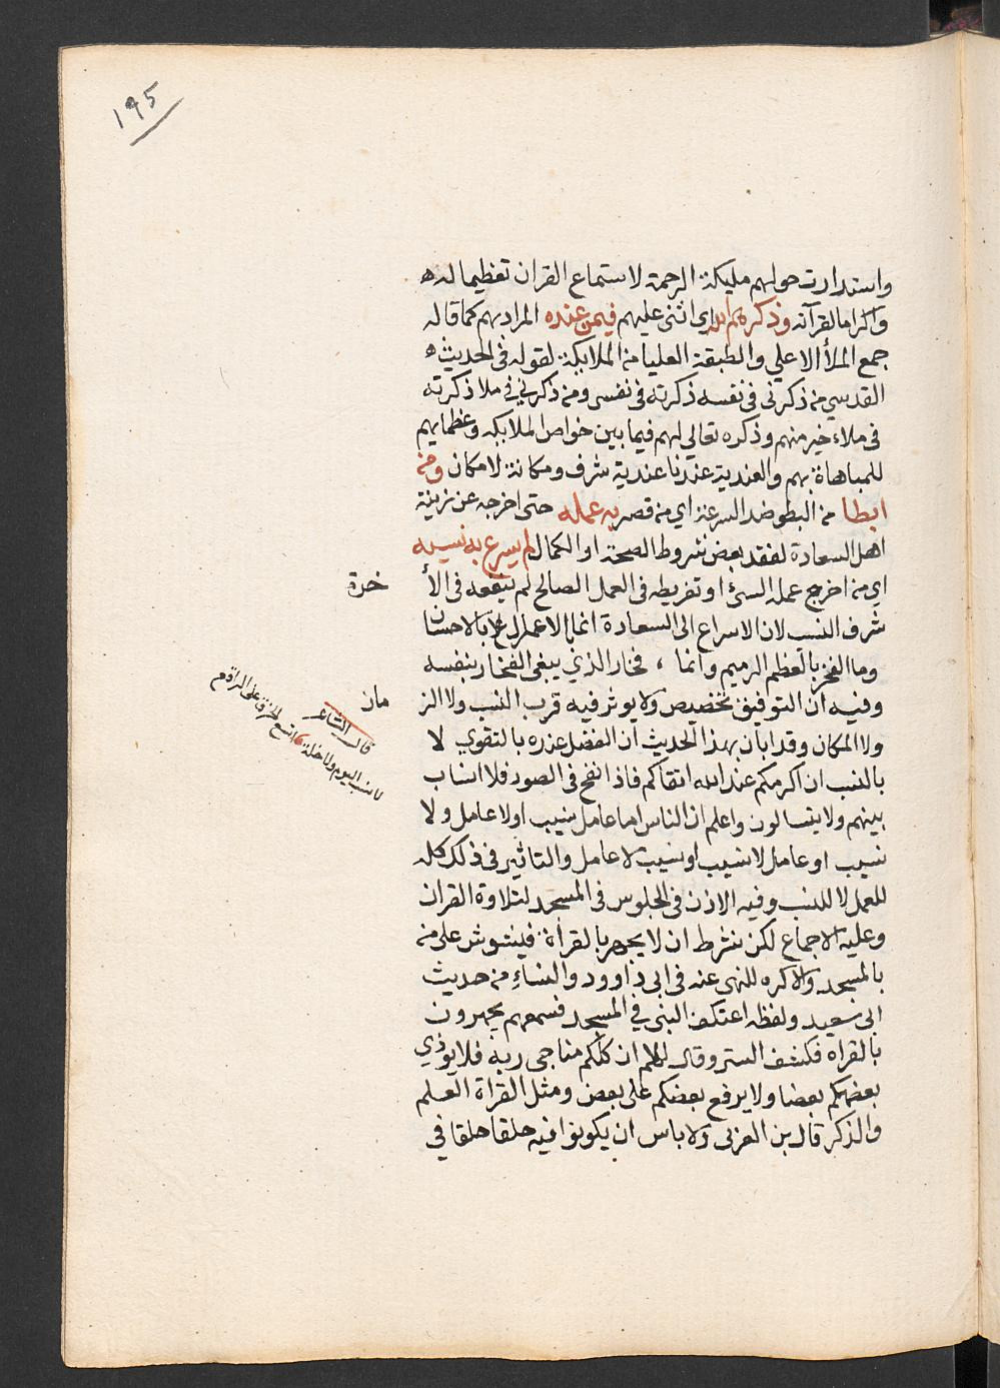 ١٩٥
واستدارت حولهم مليكة الرحمة لاستماع القران تعظيما له
واكراما لقرآنه وذكرهم الله اى اثنى عليهم فيمن عنده المراد بهم كما قاله
جمع الملأ الاعلي والطبقة العليا من الملايكة لقوله فى الحديث
القدسي من ذكرنى فى نفسه ذكرته فى نفسى ومن ذكرني في ملا ذكرته
فى ملاء خير منهم وذكره تعالي لهم فيما بين خواص الملايكه وعظمايهم
للمباهاة بهم والعندية عندنا عندية شرف ومكانة لا مكان ومن
ابطا من البطو ضد السرعة اي من قصر به عمله حتى اخرجه عن زينة
اهل السعادة لفقد بعض شروط الصحة او الكمال لم يسرع به نسبه
اي من اخرج عمله السئ او تفريطه فى العمل الصالح لم ينفعه فى الأ
خرة
شرف النسب لان الاسراع الى السعادة انما بالاعمال لا بالاحسان
وما الفخر بالعظم الرميم وانما ، فخار الذي يبغى الفخار بنفسه
وفيه ان التوفيق تخصيص ولا يوثر فيه قرب النسب ولا الز
مان
ولا المكان وقد ابان بهذا الحديث ان الفضل عنده بالتقوي لا
بالنسب ان اكرمكم عند الله اتقاكم فاذا نفخ فى الصور فلا انساب
بينهم ولا يتسالون واعلم ان الناس اما عامل نسيب او لا عامل ولا
نسيب او عامل لا نسيب او نسيب لا عامل والتاثير فى ذلك كله
للعمل لا للنسب وفيه الاذن فى الجلوس فى المسجد لتلاوة القران
وعليه الاجماع لكن بشرط ان لا يجهر بالقرأة فيشوش على من
بالمسجد والا كره للنهى عنه فى ابى داوود والنساءِ من حديث
ابى سعيد ولفظه اعتكف النبى في المسجد فسمعهم يجهرون
بالقراه فكشف الستر وقال الا ان كلكم مناجى ربه فلا يوذي
بعضكم بعضا ولا يرفع بعضكم على بعض ومثل القرأة العلم
والذكر قال بن العربى ولا باس ان يكونوا فيه حلقا حلقا في
قال الشاعر
لا نسب اليوم ولا خلة اتسع الخرق على الراقع